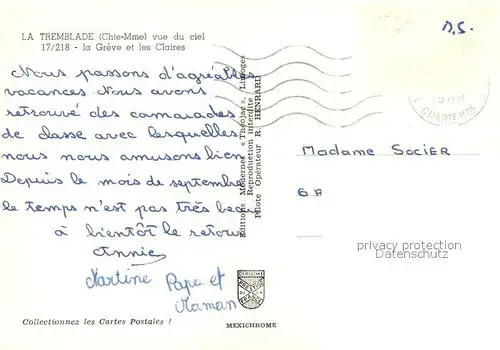 LA TREMBLADE (Chte-Mme) vue du ciel
17/218 - la Grève et les Claires
Nous passons d'agréables
vacances Nous avons
retrouvé des camarades
de classe avec lesquelles
nous nous amusons bien
Depuis le mois de septembre
le temps n'est pas très beau
à bientôt le retour
Annie
Martine Papa et
Maman
Collectionnez les Cartes Postales !
Editions Modernes « Théojac » Limoges
Reproduction interdite
Pilote Opérateur R. HENRARD
MEXICHROME
D.S.
CHARTE MME
Madame SOCIER
6 A
privacy protection
DATENSCHUTZ